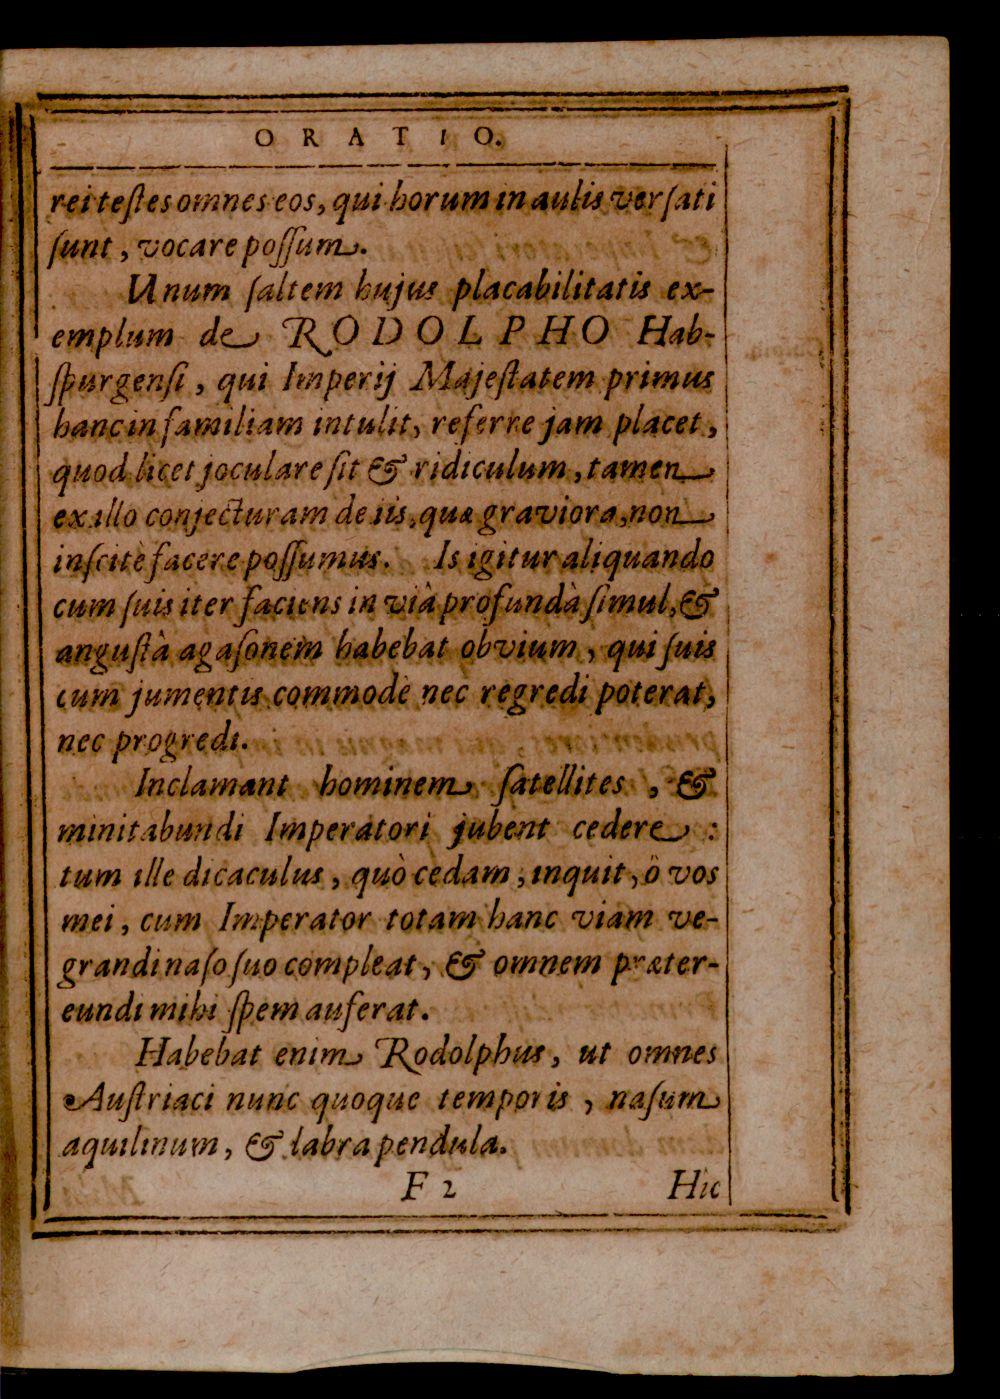 ORATIO.
rei teſtes omnes eos, qui horum in aulis verſati
ſunt, vocare poſſum.
Unum ſaltem hujus placabilitatis ex-
emplum de RODOLPHO Hab-
ſpurgenſi, qui Imperij Majeſtatem primus
hanc in familiam intulit, referre jam placet,
quod licet joculare ſit & ridiculum, tamen
ex illo conjecturam de iis, quæ graviora, non
inſcitè facere poſſumus. Is igitur aliquando
cum ſuis iter faciens in viâ profundà ſimul, &
anguſtà agaſonem habebat obvium, qui ſuis
cum jumentis commodè nec regredi poterat,
nec progredi.
Inclamant hominem ſatellites, &
minitabundi Imperatori jubent cedere:
tum ille dicaculus, quò cedam, inquit, ô vos
mei, cum Imperator totam hanc viam ve-
grandi naſo ſuo compleat, & omnem præter-
eundi mihi ſpem auferat.
Habebat enim Rodolphus, ut omnes
Auſtriaci nunc quoque temporis, naſum
aquilinum, & labra pendula.
F 2 Hic